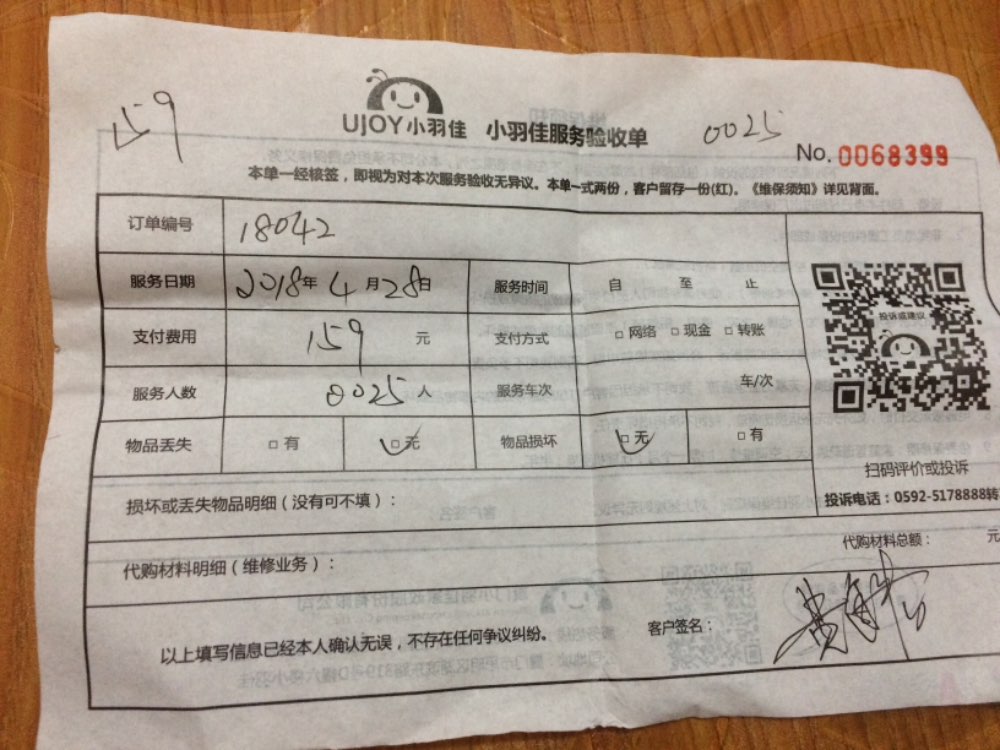 159
UJOY小羽佳 小羽佳服务验收单 0025
No. 0068399
本单一经核签，即视为对本次服务验收无异议。本单一式两份，客户留存一份(红)。《维保须知》详见背面。
订单编号 18042
服务日期 2018年 4月28日 服务时间 自 至 止
支付费用 159 元 支付方式 □网络 □现金 □转账
服务人数 0025人 服务车次 车/次
物品丢失 □有 □无 物品损坏 □无 □有
投诉或建议
扫码评价或投诉
投诉电话：0592-5178888转
损坏或丢失物品明细（没有可不填）：
代购材料明细（维修业务）：
代购材料总额： 元
以上填写信息已经本人确认无误，不存在任何争议纠纷。 客户签名：